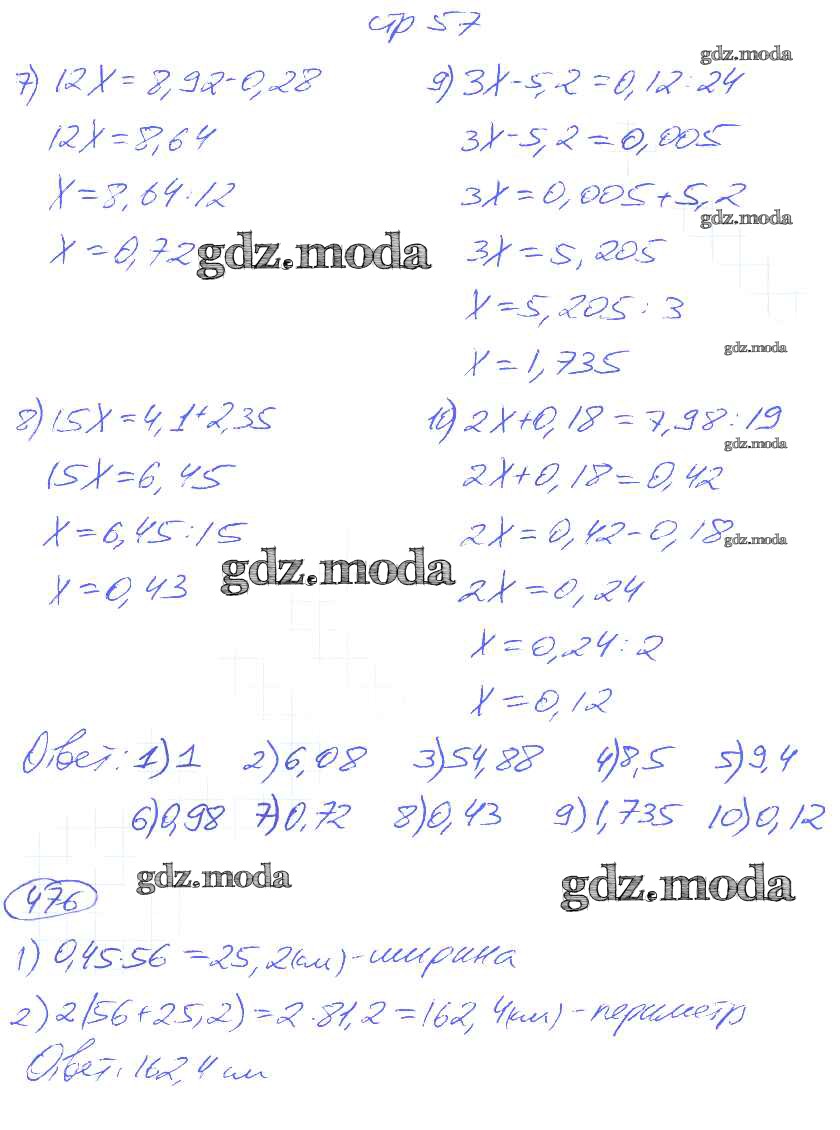 стр 57
gdz.moda
7) 12x = 8,92-0,28
12x = 8,64
x = 8,64:12
x = 0,72
gdz.moda
9) 3x-5,2 = 0,12:24
3x-5,2 = 0,005
3x = 0,005+5,2
gdz.moda
3x = 5,205
x = 5,205:3
gdz.moda
x = 1,735
8) 15x = 4,1+2,35
15x = 6,45
x = 6,45:15
x = 0,43
gdz.moda
10) 2x+0,18 = 7,98:19
gdz.moda
2x+0,18 = 0,42
2x = 0,42-0,18
gdz.moda
2x = 0,24
x = 0,24:2
x = 0,12
Ответ: 1) 1 2) 6,08 3) 54,88 4) 8,5 5) 9,4
6) 0,98 7) 0,72 8) 0,43 9) 1,735 10) 0,12
gdz.moda
gdz.moda
476
1) 0,45·56 = 25,2(см) - ширина
2) 2(56+25,2) = 2·81,2 = 162,4(см) - периметр
Ответ: 162,4 см